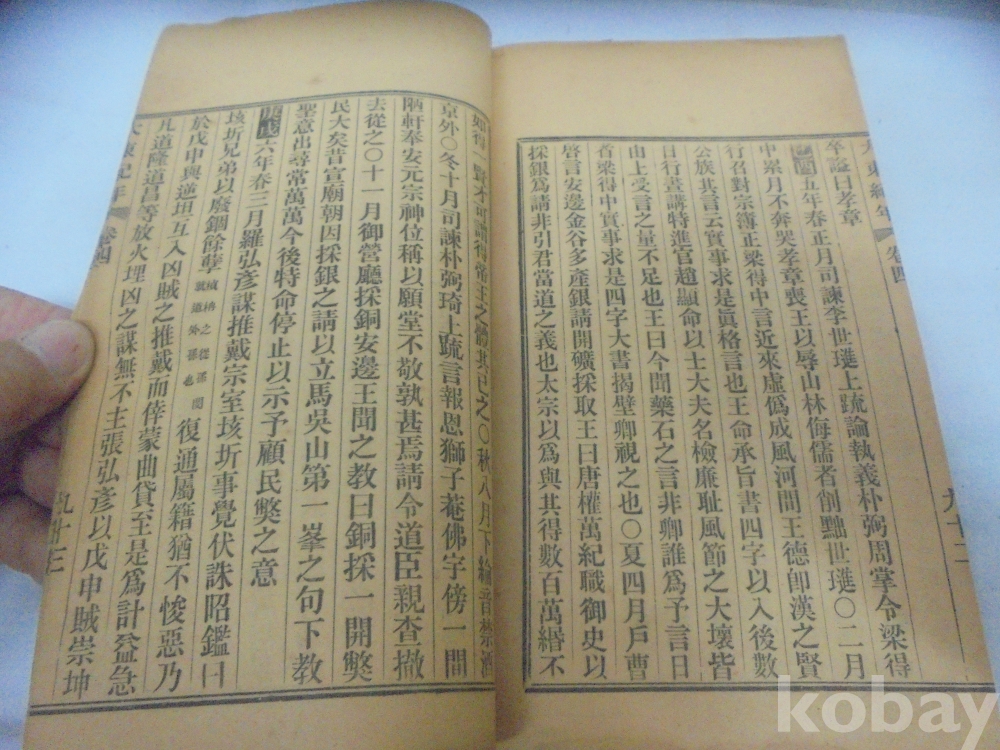 大東紀年
卷四
卒諡曰孝章
五年春正月司諫李世璡上疏論執義朴弼周掌令梁得
中累月不奔哭孝章喪王以辱山林侮儒者削黜世璡〇二月
行召對宗簿正梁得中言近來虛僞成風河間王德卽漢之賢
公族其言云實事求是眞格言也王命承旨書四字以入後數
日行晝講特進官趙顯命以士大夫名檢廉耻風節之大壞皆
由上受言之量不足也王曰今聞藥石之言非卿誰爲予言日
首梁得中實事求是四字大書揭壁卿視之也〇夏四月戶曹
啓言安邊金谷多產銀請開礦採取王曰唐權萬紀職御史以
採銀爲請非引君當道之義也太宗以爲與其得數百萬緡不
九十二
如得一賢才可謂得帝王之體其已之〇秋八月下綸音禁酒
京外〇冬十月司諫朴弼琦上疏言報恩獅子菴佛宇傍一間
陋軒奉安元宗神位稱以願堂不敬孰甚焉請令道臣親查撤
去從之〇十一月御營廳採銅安邊王聞之教曰銅採一開獘
民大矣昔宣廟朝因採銀之請以立馬吳山第一峯之句下教
聖意出尋常萬萬今後特命停止以示予顧民獘之意
庚戌六年春三月羅弘彥謀推戴宗室垓圻事覺伏誅昭鑑曰
垓圻兄弟以廢錮餘孽 復通屬籍猶不悛惡乃
於戊申與逆坦互入凶賊之推戴而倖蒙曲貸至是爲計益急
凡道隆道昌等放火埋凶之謀無不主張弘彥以戊申賊崇坤
大東紀年
卷四
九十三
kobay